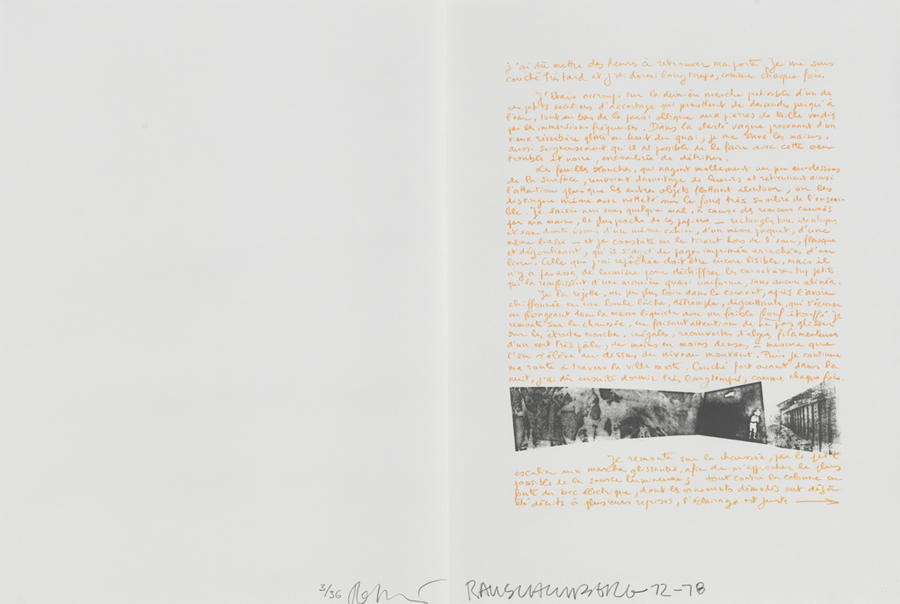 j'ai dû mettre des heures à retrouver ma porte. Je me suis
couché très tard et j'ai dormi longtemps, comme chaque fois.
J'étais accroupi sur la dernière marche praticable d'un de
ces petits escaliers d'accostage qui permettent de descendre jusqu'à
l'eau, tout au bas de la paroi oblique aux pierres de taille verdies
par les immersions fréquentes. Dans la clarté vague provenant d'un
vieux réverbère placé en haut du quai, je me lave les mains,
aussi soigneusement qu'il est possible de le faire avec cette eau
trouble et noire, encombrée de détritus.
Les feuilles blanches, qui nagent mollement un peu au-dessous
de la surface, renvoient davantage de lueurs et retiennent ainsi
l'attention plus que les autres objets flottant alentour; on les
distingue même avec netteté sur le fond très sombre de l'ensem-
ble. Je saisis non sans quelque mal, à cause des remous causés
par ma main, le plus proche de ces papiers — rectangles, tous identiques
et sans doute issus d'un même cahier, d'un même paquet, d'une
même liasse — et je constate en le tirant hors de l'eau, flasque
et dégoulinant, qu'il s'agit de pages imprimées arrachées d'un
livre. Celle que j'ai repêchée doit être encore lisible, mais il
n'y a pas assez de lumière pour déchiffrer les caractères trop petits
qui la remplissent d'une manière quasi uniforme, sans aucun alinéa.
Je la rejette, un peu plus loin dans le courant, après l'avoir
chiffonnée en une boule lâche, détrempée, dégouttante, qui s'écrase
en plongeant dans la masse liquide avec un faible plouf étouffé. Je
remonte sur la chaussée, en faisant attention de ne pas glisser
sur les étroites marches, inégales, recouvertes d'algues filamenteuses
d'un vert très pâle, de moins en moins denses à mesure que
l'on s'élève au-dessus du niveau mouvant. Puis je continue
ma route à travers la ville morte. Couché fort avant dans la
nuit, j'ai dû ensuite dormir très longtemps, comme chaque fois.
Je remonte sur la chaussée, par le petit
escalier aux marches glissantes, afin de m'approcher le plus
possible de la source lumineuse; tout contre la colonne en
fonte du bec électrique, dont les ornements démodés ont déjà
été décrits à plusieurs reprises, l'éclairage est juste →
3/36 RAUSCHENBERG 72-78